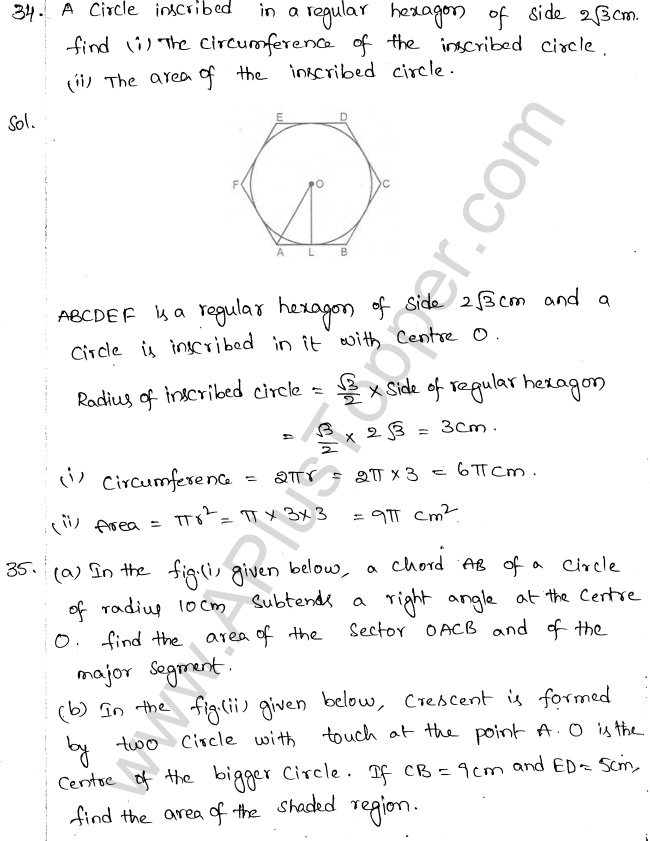 34. A Circle inscribed in a regular hexagon of side 2√3cm.
find (i) The circumference of the inscribed circle.
(ii) The area of the inscribed circle.
Sol.
E D
F O C
A L B
ABCDEF is a regular hexagon of side 2√3cm and a
Circle is inscribed in it with Centre O.
Radius of inscribed circle = √3/2 × Side of regular hexagon
= √3/2 × 2√3 = 3cm.
(i) Circumference = 2πr = 2π×3 = 6π cm.
(ii) Area = πr² = π × 3×3 = 9π cm²
35. (a) In the fig.(i) given below, a chord AB of a circle
of radius 10cm subtends a right angle at the Centre
O. find the area of the sector OACB and of the
major segment.
(b) In the fig.(ii) given below, Crescent is formed
by two Circle with touch at the point A. O is the
Centre of the bigger Circle. If CB = 9cm and ED = 5cm,
find the area of the shaded region.
www.APlusTopper.com